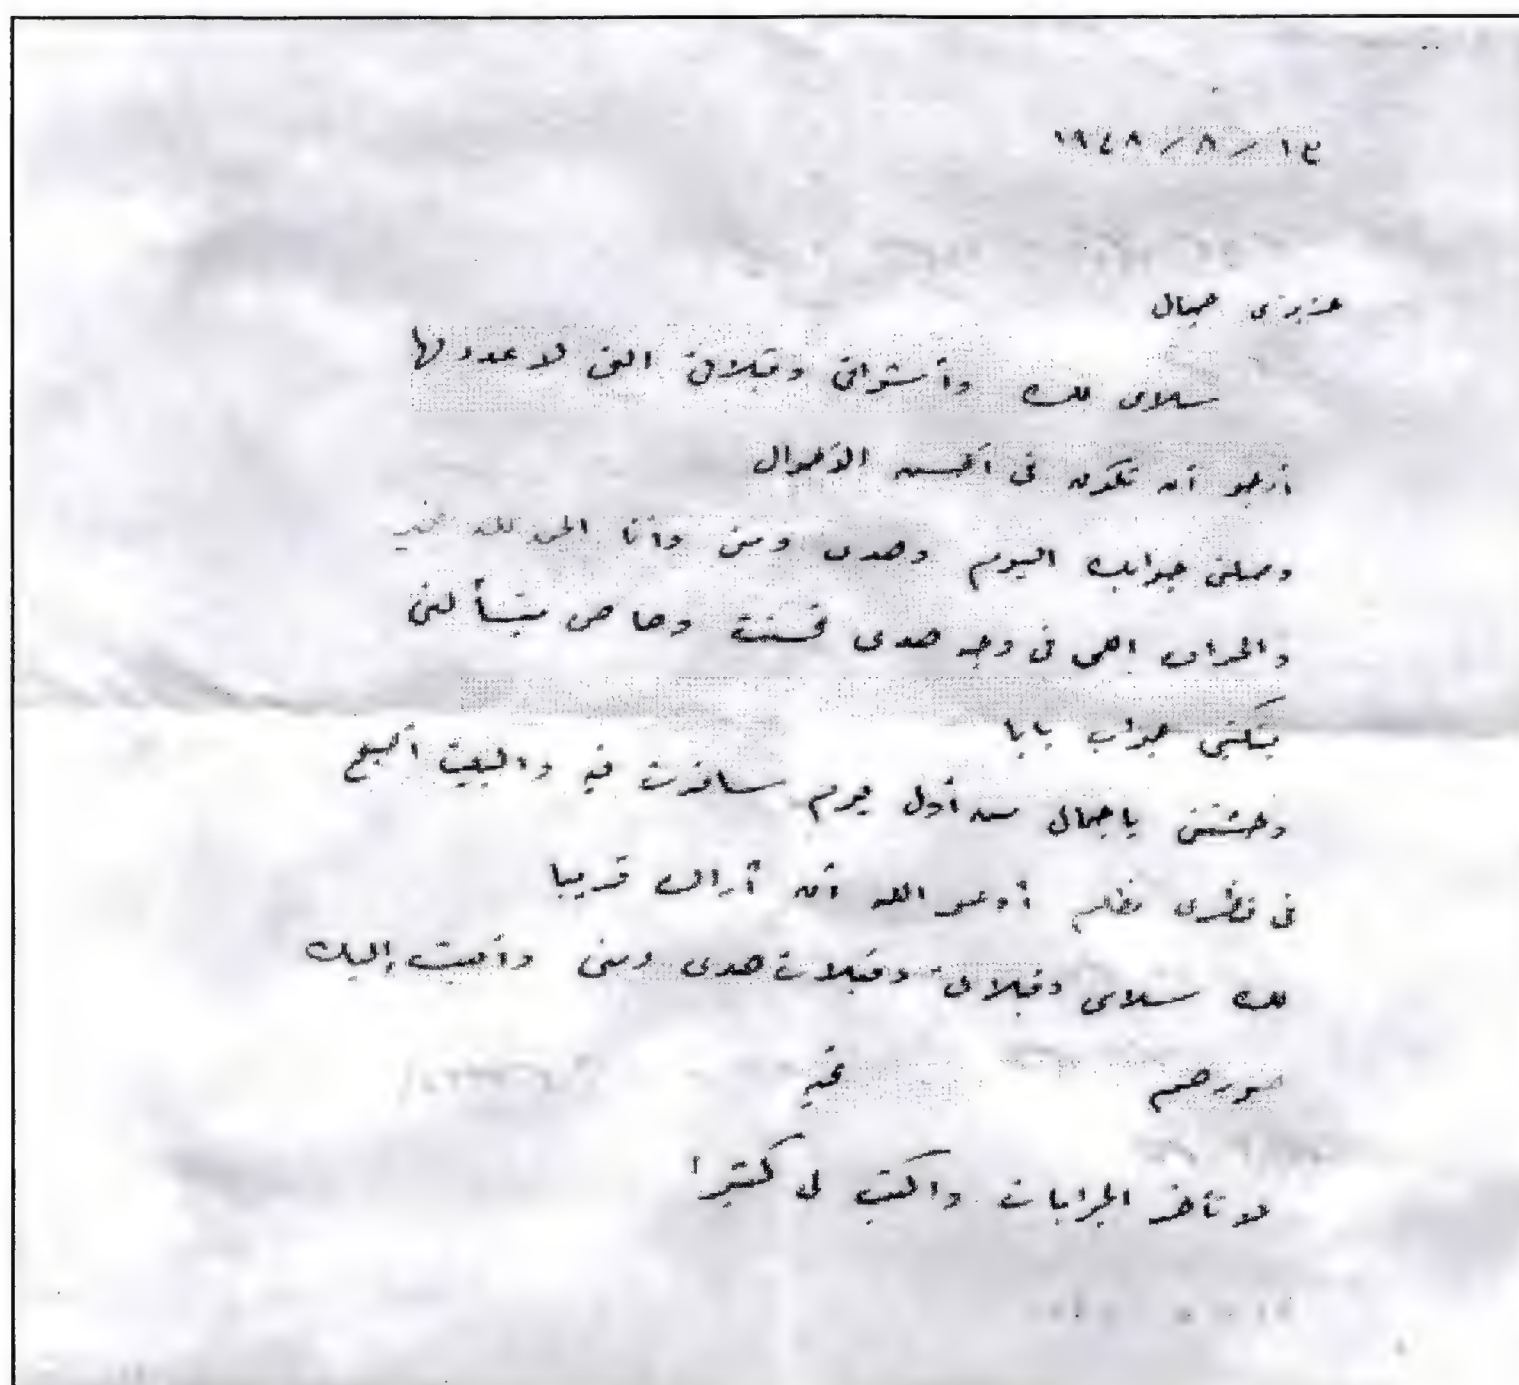 ١٣ / ٨ / ١٩٤٨
عزيزى جمال
سلامى لك وأشواقى وقبلاتى التى لا عدد لها
أرجو أن تكون فى أحسن الأحوال
وصلنى جوابك اليوم وهدى ومنى وأنا الحمد لله بخير
والحراره اللى فى وجه هدى تحسنت وحاصى بتسألنى
بتكتبى جواب بابا
وحشتنى ياجمال من أول يوم سافرت فيه والبيت أصبح
فى نظرى مظلم أدعو الله أن أراك قريبا
لك سلامى وقبلاتى وقبلات هدى ومنى وأبعث إليك
صورهم تحيه
لا تأخر الجوابات واكتب لى كثيرا